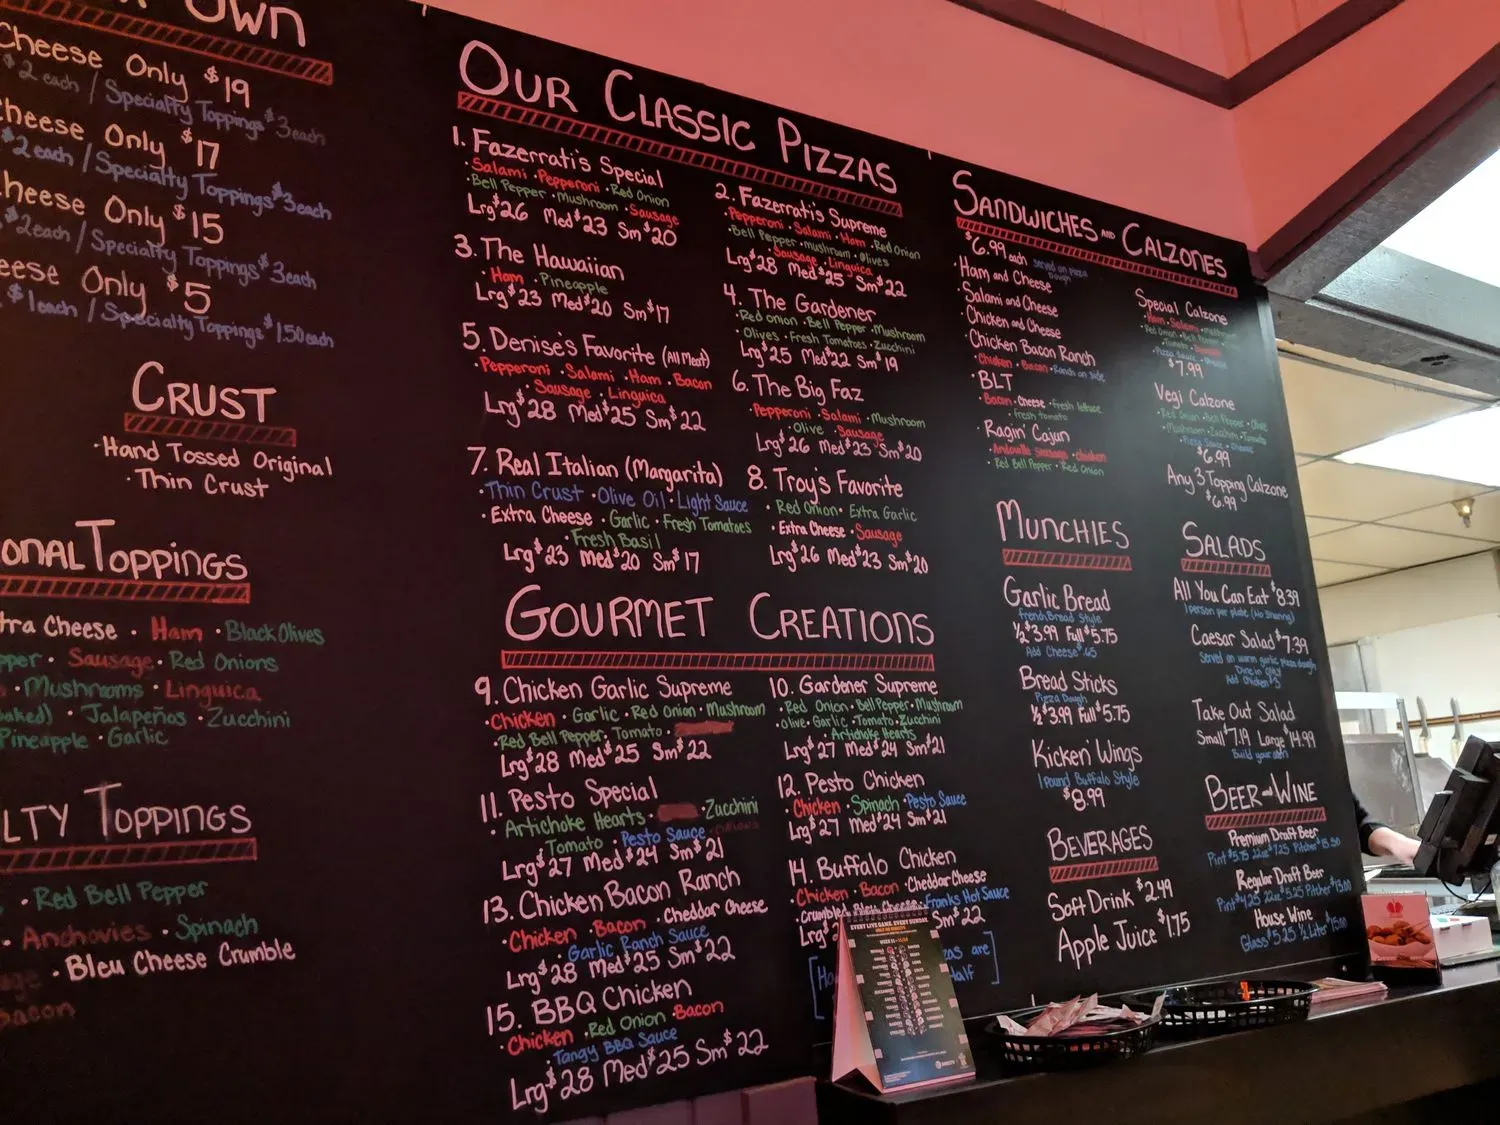 Own
Cheese Only $19
$2 each / Specialty Toppings $3 each
Cheese Only $17
$2 each / Specialty Toppings $3 each
heese Only $15
$2 each / Specialty Toppings $3 each
eese Only $5
$1 each / Specialty Toppings $1.50 each
Crust
· Hand Tossed Original
· Thin Crust
onal Toppings
tra Cheese · Ham · Black Olives
pper · Sausage · Red Onions
· Mushrooms · Linguica
aked) · Jalapeños · Zucchini
Pineapple · Garlic
lty Toppings
· Red Bell Pepper
· Anchovies · Spinach
· Bleu Cheese Crumble
Bacon
Our Classic Pizzas
1. Fazerrati's Special
· Salami · Pepperoni · Red Onion
· Bell Pepper · Mushroom · Sausage
Lrg $26 Med $23 Sm $20
2. Fazerrati's Supreme
· Pepperoni · Salami · Ham · Red Onion
· Bell Pepper · mushroom · Olives
· Sausage · Linguica
Lrg $28 Med $25 Sm $22
3. The Hawaiian
· Ham · Pineapple
Lrg $23 Med $20 Sm $17
4. The Gardener
· Red onion · Bell Pepper · Mushroom
· Olives · Fresh Tomatoes · Zucchini
Lrg $25 Med $22 Sm $19
5. Denise's Favorite (All Meat)
· Pepperoni · Salami · Ham · Bacon
· Sausage · Linguica
Lrg $28 Med $25 Sm $22
6. The Big Faz
· Pepperoni · Salami · Mushroom
· Olive · Sausage
Lrg $26 Med $23 Sm $20
7. Real Italian (Margarita)
· Thin Crust · Olive Oil · Light Sauce
· Extra Cheese · Garlic · Fresh Tomatoes
· Fresh Basil
Lrg $23 med $20 Sm $17
8. Troy's Favorite
· Red Onion · Extra Garlic
· Extra Cheese · Sausage
Lrg $26 Med $23 Sm $20
Gourmet Creations
9. Chicken Garlic Supreme
· Chicken · Garlic · Red Onion · Mushroom
· Red Bell Pepper · Tomato ·
Lrg $28 Med $25 Sm $22
10. Gardener Supreme
· Red Onion · Bell Pepper · Mushroom
· Olive · Garlic · Tomato · Zucchini
· Artichoke Hearts
Lrg $27 Med $24 Sm $21
11. Pesto Special
· Artichoke Hearts · · Zucchini
· Tomato · Pesto Sauce
Lrg $27 Med $24 Sm $21
12. Pesto Chicken
· Chicken · Spinach · Pesto Sauce
Lrg $27 Med $24 Sm $21
13. Chicken Bacon Ranch
· Chicken · Bacon · Cheddar Cheese
· Garlic Ranch Sauce
Lrg $28 Med $25 Sm $22
14. Buffalo Chicken
· Chicken · Bacon · Cheddar Cheese
· Crumbled Bleu Cheese · Franks Hot Sauce
Lrg $2 Sm $22
15. BBQ Chicken
· Chicken · Red Onion · Bacon
· Tangy BBQ Sauce
Lrg $28 Med $25 Sm $22
are
Half
Sandwiches and Calzones
$6.99 each served on pizza dough
Ham and Cheese
Salami and Cheese
Chicken and Cheese
Chicken Bacon Ranch
· Chicken · Bacon · Ranch on side
· BLT
· Bacon · Cheese · fresh lettuce
· fresh tomato
Ragin' Cajun
· Andouille Sausage · chicken
· Red Bell Pepper · Red Onion
Special Calzone
· Ham · Salami · mushroom
Red Onion · Bell Pepper
Tomato
Pizza Sauce
$7.99
Vegi Calzone
· Red Onion · Bell Pepper · Olive
· Mushroom · Zucchini · Tomato
Pizza Sauce
$6.99
Any 3 Topping Calzone
$6.99
Munchies
Garlic Bread
French Bread Style
½ $3.99 Full $5.75
Add Cheese $.65
Bread Sticks
Pizza Dough
½ $3.99 Full $5.75
Kicken' Wings
1 Pound Buffalo Style
$8.99
Beverages
Soft Drink $2.49
Apple Juice $1.75
Salads
All You Can Eat $8.39
1 person per plate (No Sharing)
Caesar Salad $7.39
Served on warm garlic pizza dough
Dine in only
Add Chicken $3
Take Out Salad
Small $7.19 Large $14.99
Build your own
Beer and Wine
Premium Draft Beer
Pint $5.75 22oz $7.25 Pitcher $15.50
Regular Draft Beer
Pint $4.25 22oz $5.25 Pitcher $13.00
House Wine
Glass $5.25 ½ Liter $15.00
EVERY LIVE GAME. EVERY SUNDAY.